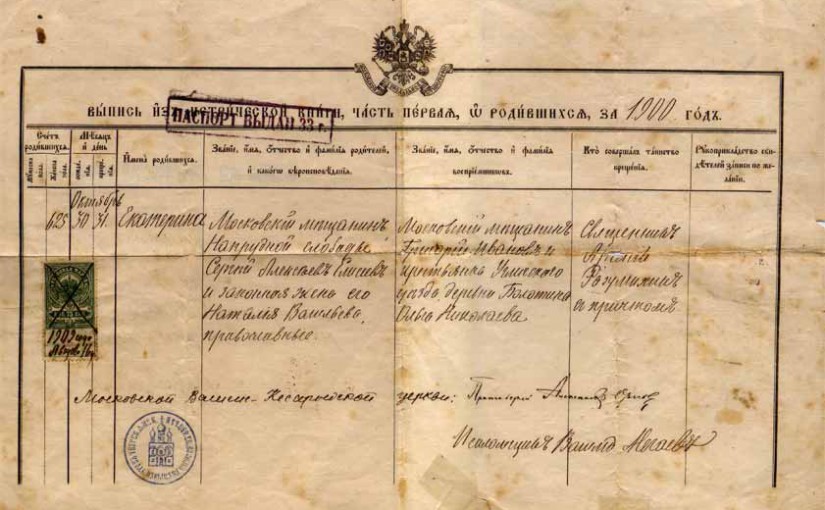 ВЫПИСЬ ИЗЪ МЕТРИЧЕСКОЙ КНИГИ, ЧАСТЬ ПЕРВАЯ, Ѡ РОДИВШИХСЯ, ЗА 1900 ГОДЪ.
ПАСПОРТ ВЫДАН 33 г.
Счетъ родившихся.
Мѣсяцъ и день
Имена родившихся.
Званіе, имя, отчество и фамилія родителей, и какого вѣроисповѣданія.
Званіе, имя, отчество и фамилія воспріемниковъ.
Кто совершалъ таинство крещенія.
Рукоприкладство свидѣтелей записи по желанію.
Октябрь
625 30 31. Екатерина
Московскій мѣщанинъ
Напрудной слободы
Сергѣй Алексѣевъ
и законная жена его
Наталія Васильева,
православные.
Московскій мѣщанинъ
Григорій Ивановъ и
крестьянка
уѣзда, деревни
Ольга Николаева
Священникъ
Разумихинъ
съ причтомъ
1909
Московской Василіе-Кесарійской церкви: